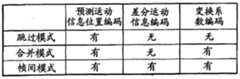 预测运动信息位置编码 差分运动信息编码 变换系数编码
跳过模式 有 无 无
合并模式 有 无 有
帧间模式 有 有 有